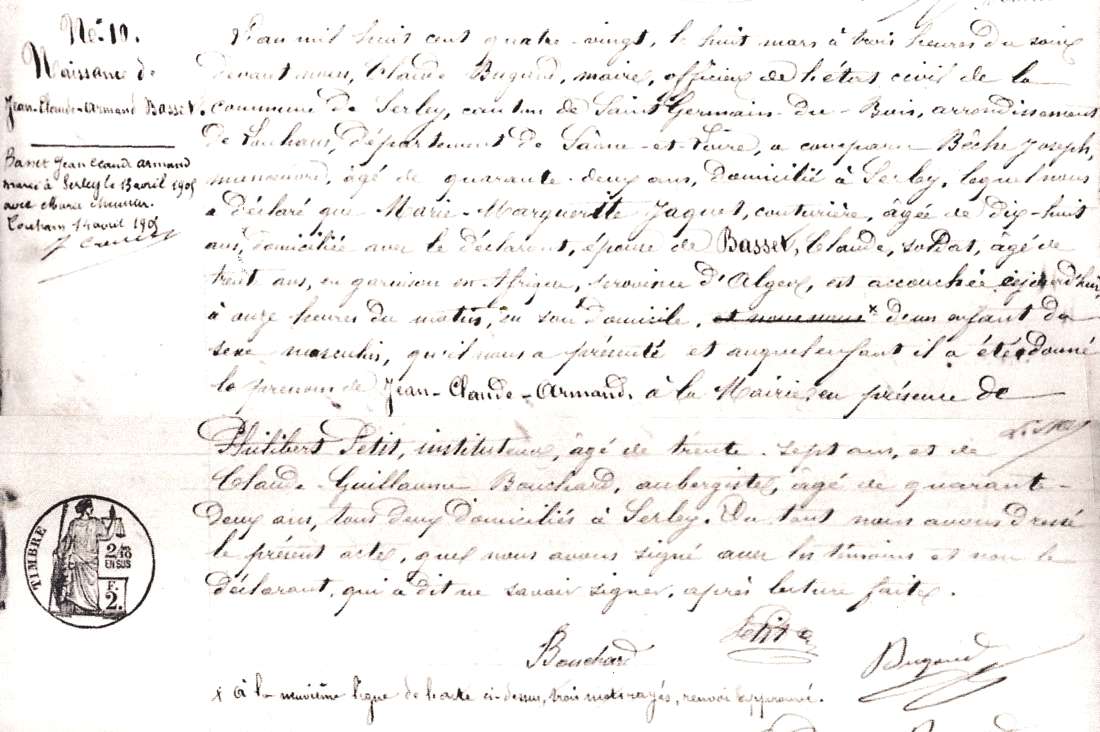 No. 10.
Naissance de
Jean-Claude-Armand Basset.
Basset Jean Claude Armand
marié à Serley le 13 avril 1905
avec Marie
Louhans 14 avril 1905
L'an mil huit cent quatre-vingt, le huit mars à trois heures du soir
devant nous, Claude Bugaud, maire, officier de l'état civil de la
commune de Serley, canton de Saint Germain-du-Bois, arrondissement
de Louhans, département de Saône-et-Loire, a comparu Bêche Joseph,
âgé de quarante-deux ans, domicilié à Serley, lequel nous
a déclaré que Marie-Marguerite Jaquet, couturière, âgée de dix-huit
ans, domiciliée avec le déclarant, épouse de Basset, Claude, soldat, âgé de
trente ans, en garnison en Afrique, province d'Alger, est accouchée cejourd'hui,
à onze heures du matin, en son domicile, x d'un enfant du
sexe masculin, qu'il nous a présenté et auquel enfant il a été donné
le prénom de Jean-Claude-Armand, à la Mairie en présence de
Philibert Petit, instituteur, âgé de trente-sept ans, et de
Claude-Guillaume Bouchard, aubergiste, âgé de quarante-
deux ans, tous deux domiciliés à Serley. Du tout nous avons dressé
le présent acte, que nous avons signé avec les témoins et non le
déclarant, qui a dit ne savoir signer, après lecture faite.
TIMBRE
2/10
EN SUS
F.
2.
Bouchard
Petit
Bugaud
x à la neuvième ligne de l'acte ci-dessus, trois mots rayés, renvoi approuvé.